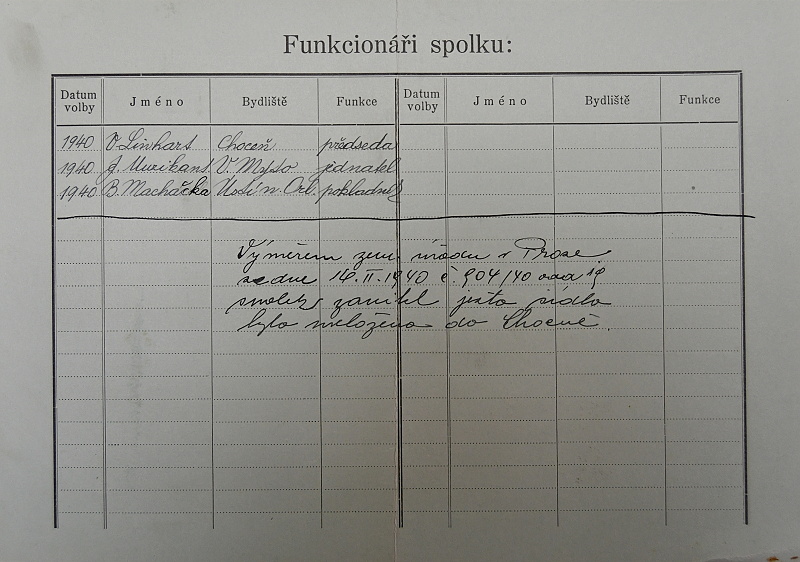 Funkcionáři spolku:
Datum volby Jméno Bydliště Funkce Datum volby Jméno Bydliště Funkce
1940 V. Linhart Choceň předseda
1940 J. Muzikant V. Mýto jednatel
1940 B. Machačka Ústí n. Orl. pokladník
Výměrem zem. úřadu v Praze
ze dne 16.II.1940 č. 904/40 odd 19
spolek zanikl ježto sídlo
bylo přeloženo do Chocně.